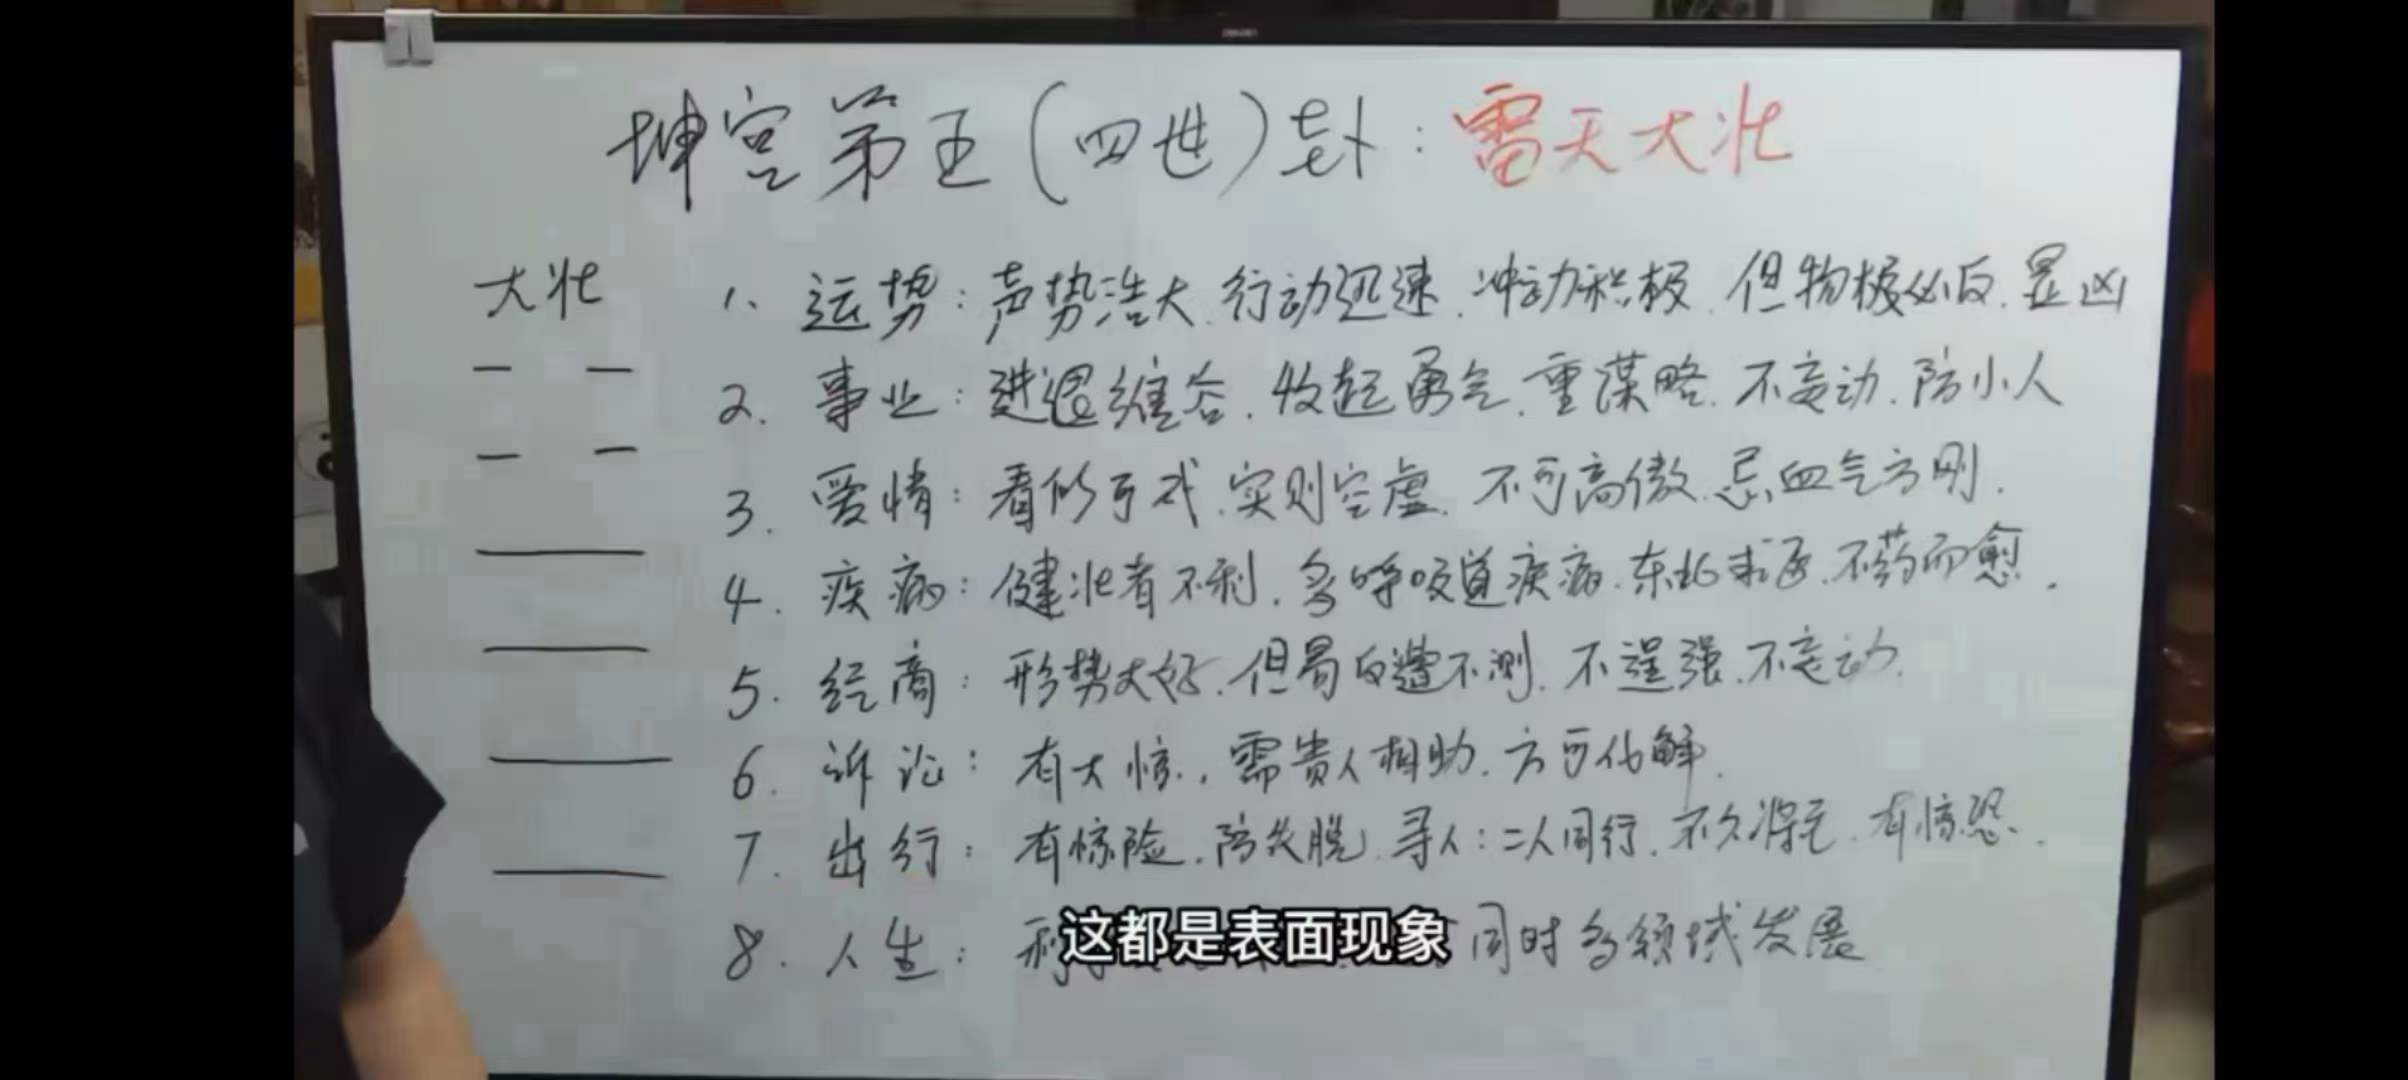 坤宫第五(四世)卦:雷天大壮
大壮
1、运势:声势浩大.行动迅速.冲动积极.但物极必反.显凶
2.事业:进退维谷.收起勇气.重谋略.不妄动.防小人
3.爱情:看似可成.实则空虚.不可高傲.忌血气方刚.
4.疾病:健壮者不利.多呼吸道疾病.东北求医.不药而愈.
5.经商:形势大好.但易自遭不测.不逞强.不妄动.
6.诉讼:有大惊,需贵人相助.方可化解.
7.出行:有惊险.防失脱.寻人:二人同行.不久将至.有惊恐.
8.人生:利 同时多领域发展
这都是表面现象